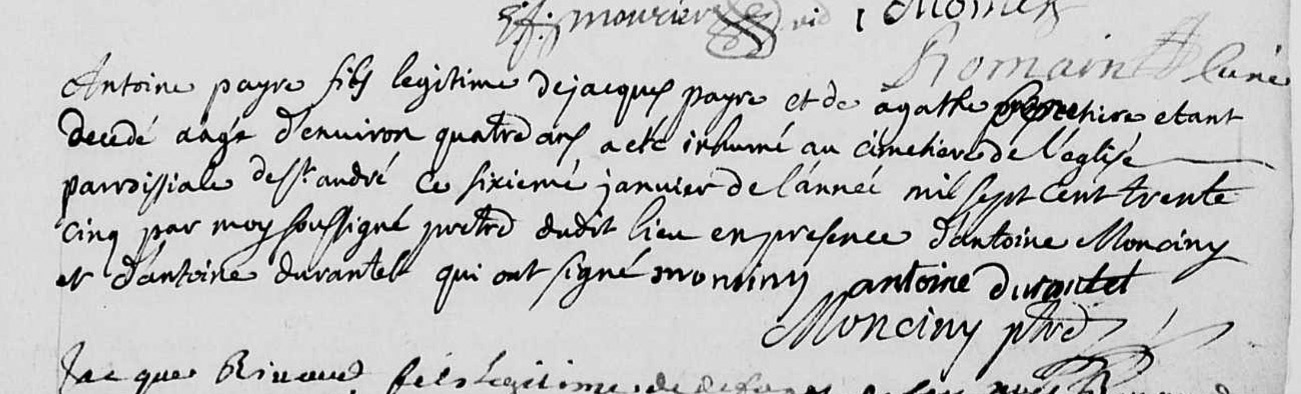 mourier
Romain Cluné
Antoine payre fils legitime de jacques payre et de agathe etant
decedé aagé d'environ quatre ans a eté inhumé au cimetiere de l'eglise
parroissiale de st andré ce sixieme janvier de l'année mil sept cent trente
cinq par moy soussigné pretre dudit lieu en presence d'antoine Monciny
et d'antoine durantet qui ont signé monciny antoine durantet
Monciny ptre
Jacques fils legitime de